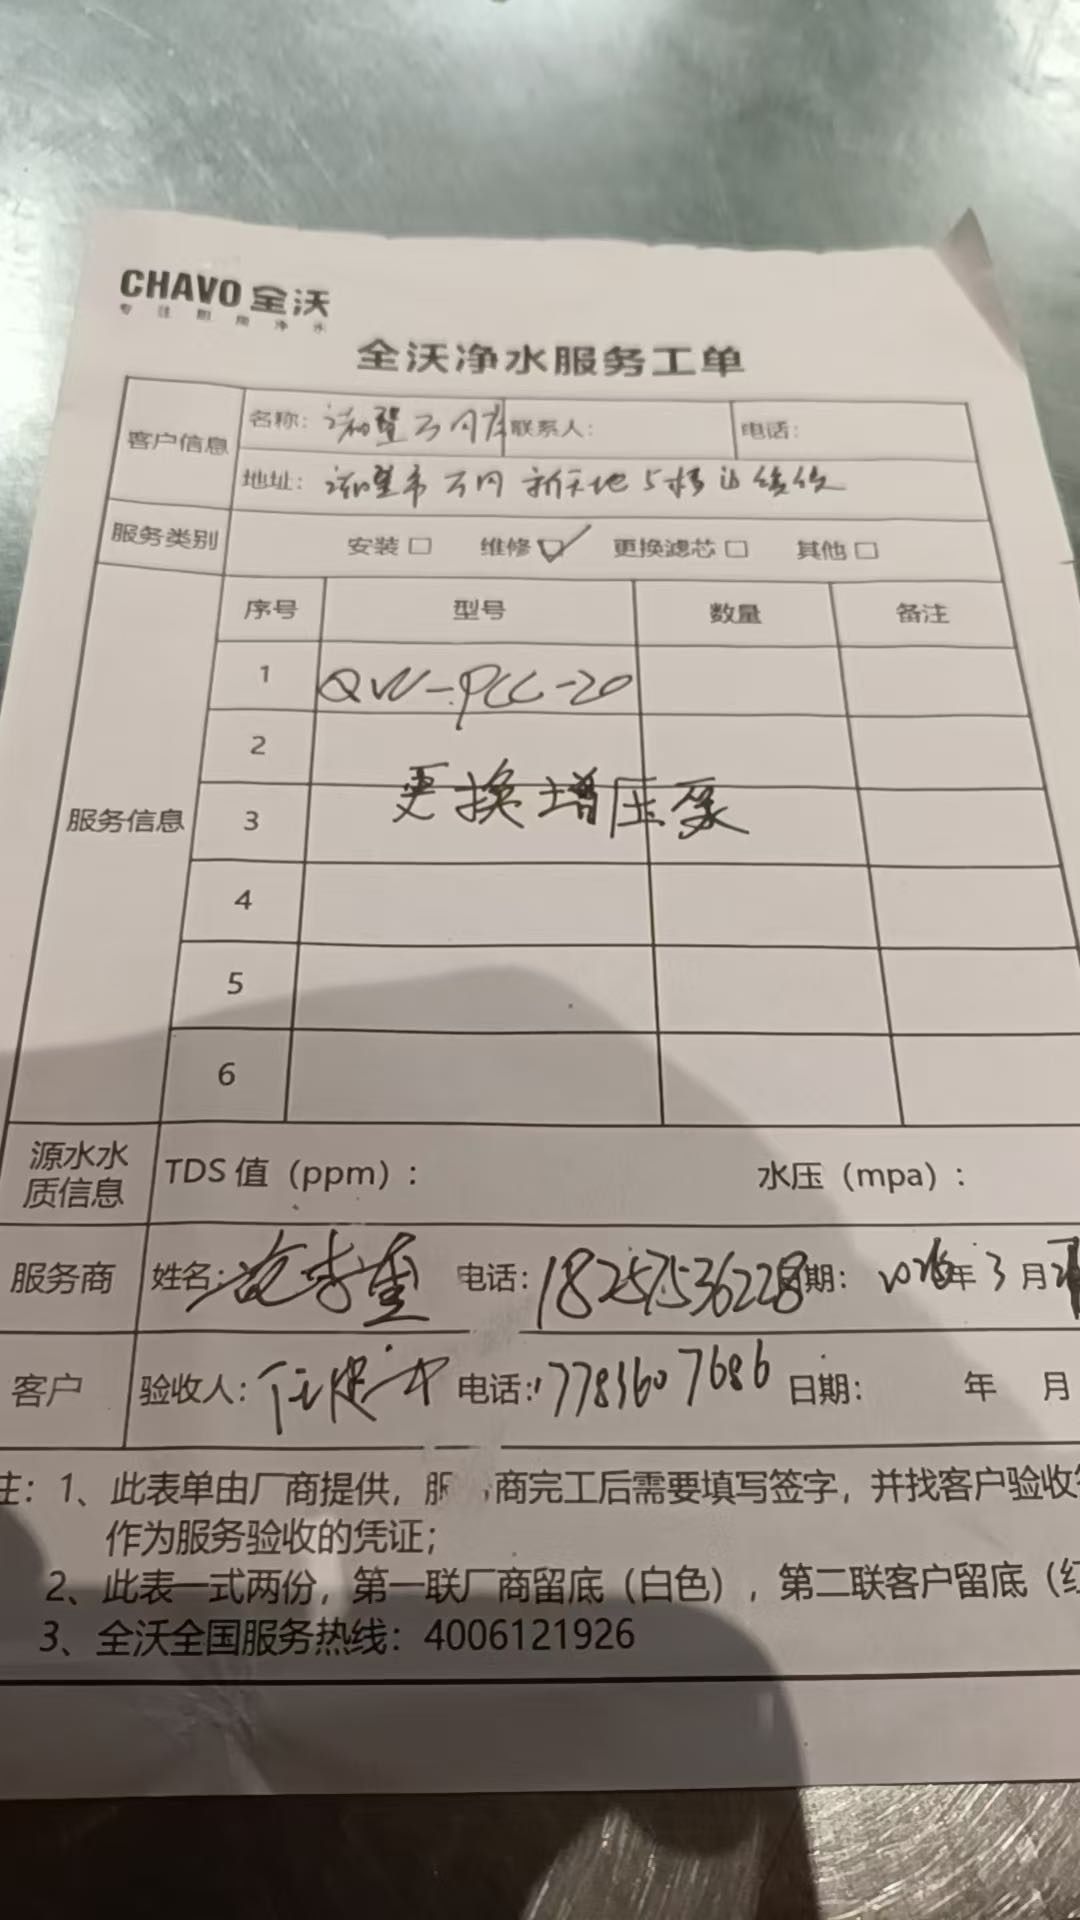 CHAVO 全沃
专注厨房净水
全沃净水服务工单
客户信息 名称： 联系人： 电话：
地址： 万 新天地5楼
服务类别 安装□ 维修☑ 更换滤芯□ 其他□
服务信息 序号 型号 数量 备注
1 QW-PCC-20
2
更换增压泵
3
4
5
6
源水水质信息 TDS 值（ppm）： 水压（mpa）：
服务商 姓名： 电话：18257536228 期：2026年3月
客户 验收人： 电话：17783607686 日期： 年 月
注：1、此表单由厂商提供，服 商完工后需要填写签字，并找客户验收
作为服务验收的凭证；
2、此表一式两份，第一联厂商留底（白色），第二联客户留底（红
3、全沃全国服务热线：4006121926